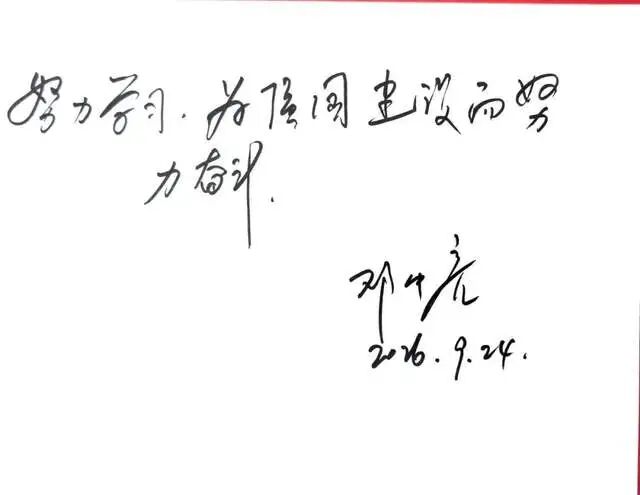 努力学习.为强国建设而努
力奋斗.
邓中亮
2026.9.24.